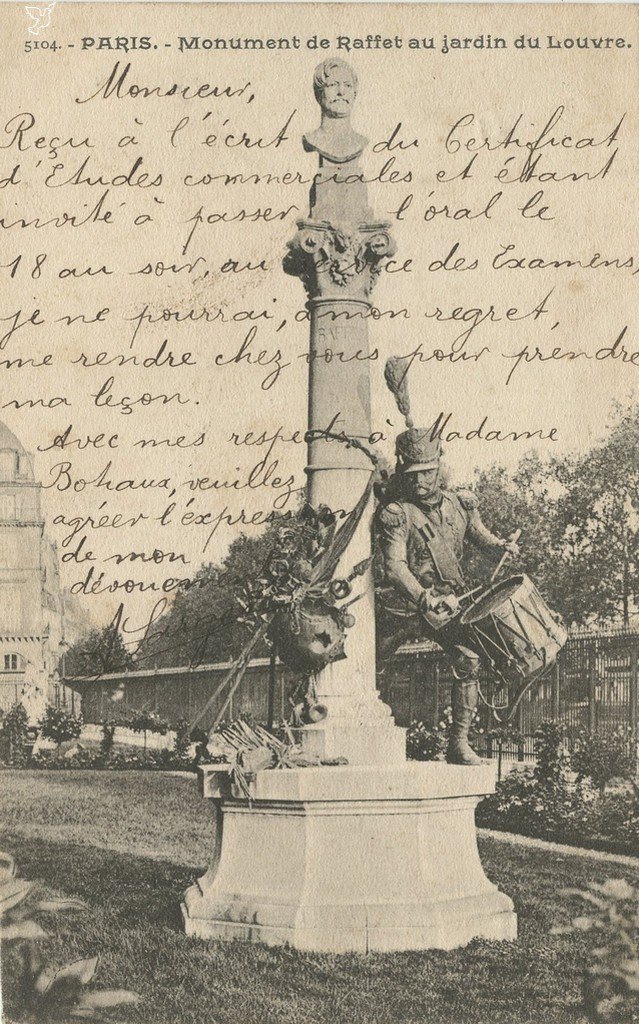 5104. - PARIS. - Monument de Raffet au jardin du Louvre.
Monsieur,
Reçu à l'écrit du Certificat
d'Etudes commerciales et étant
invité à passer l'oral le
18 au soir, au service des Examens,
je ne pourrai, à mon regret,
me rendre chez vous pour prendre
ma leçon.
Avec mes respects à Madame
veuillez
agréer l'expression
de mon
dévouement
RAFFET